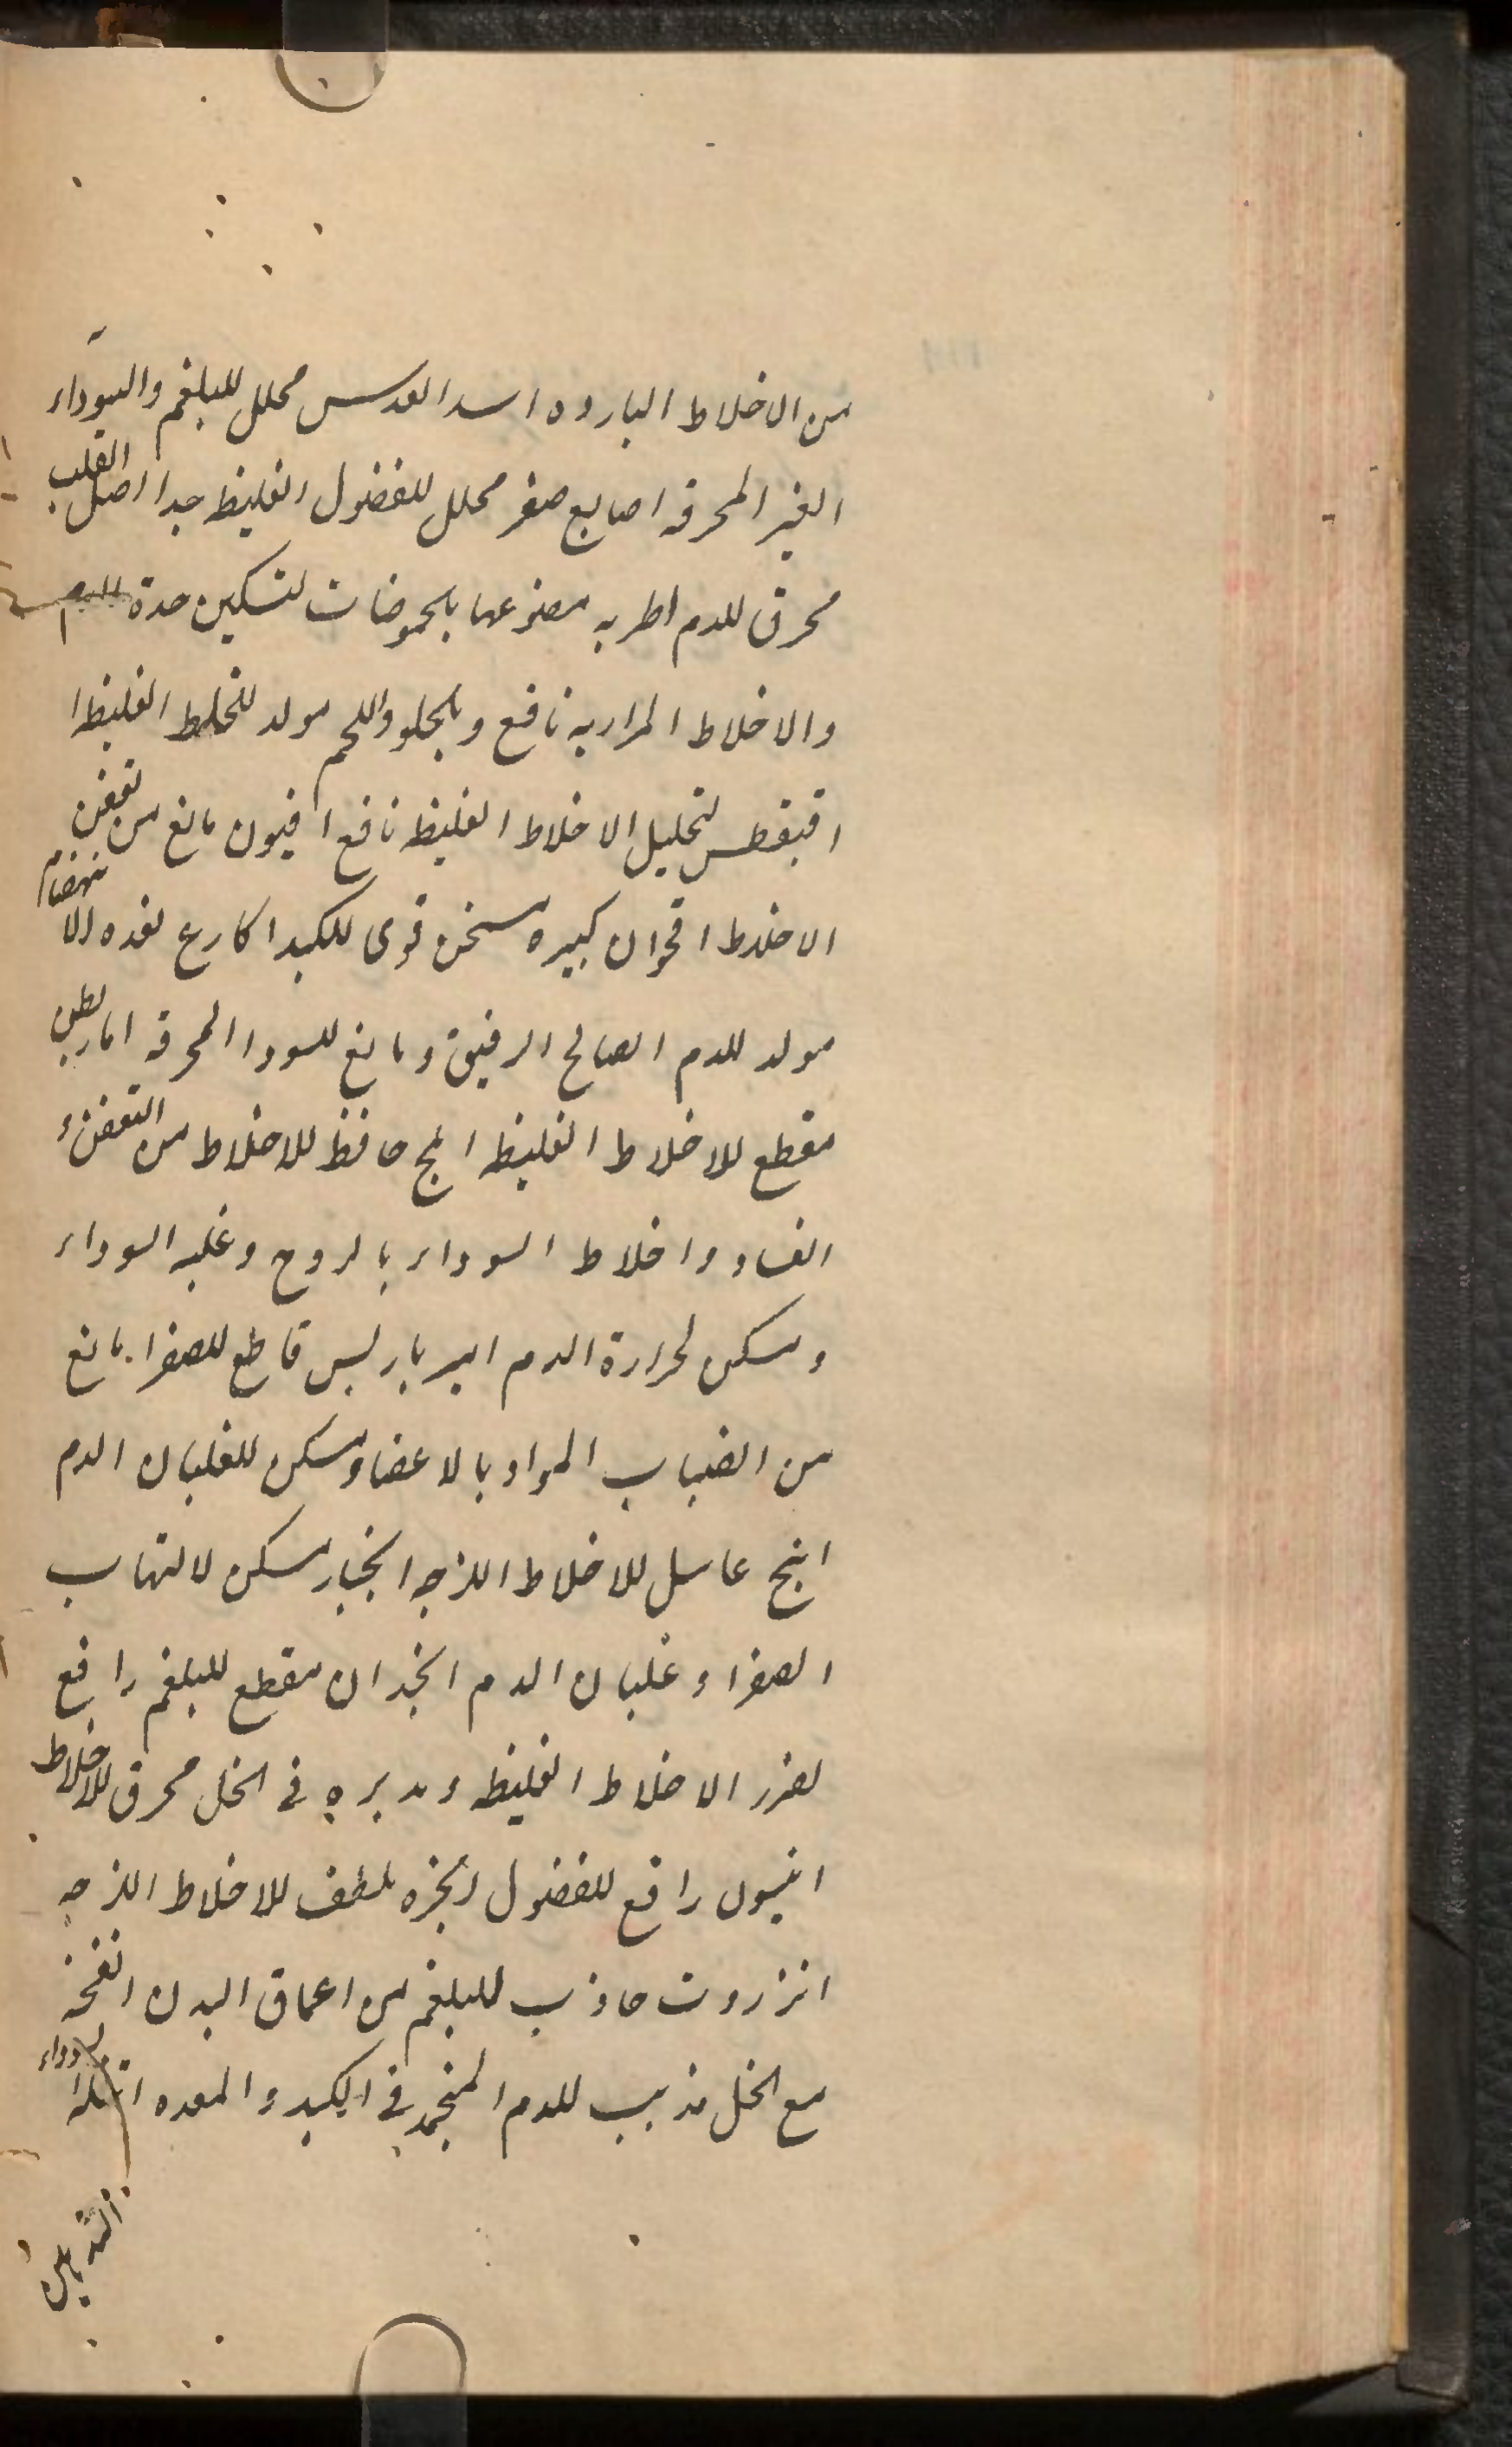 من الاخلاط البارده اسد العدس محلل للبلغم والسوداء
الغير المحرقه اصابع صفر محلل للفضول الغليظ جدا اصل القلب
محرق للدم اطريه مصنوعها بالحموضات لتسكين حدة الدم
والاخلاط المراريه نافع وبالحلو واللحم مولد للخلط الغليظ ا
لتحليل الاخلاط الغليظه نافع افيون مانع من تعفن
الاخلاط اقحوان كبيره مسخن قوى للكبد اكارع الانهضام
مولد للدم الصالح الرقيق ومانع للسودا المحرقه اماريطن
مقطع للاخلاط الغليظه املج حافظ للاخلاط من التعفن و
الفساد واخلاط السوداء بالروح وغلبه السوداء
ومسكن لحرارة الدم امير باريس قاطع للصفرا مانع
من انصباب المواد بالاعضا ومسكن للغليان الدم
انبج غاسل للاخلاط اللزجه انجبار مسكن لالتهاب
الصفرا و غليان الدم انجدان مقطع للبلغم رافع
لضرر الاخلاط الغليظه و مدبره فى الخل محرق للاخلاط
انيسون رافع للفضول انجره ملطف للاخلاط اللزجه
انزروت جاذب للبلغم من اعماق البدن انفحه
مع الخل مذيب للدم المنجمد فى الكبد و المعده